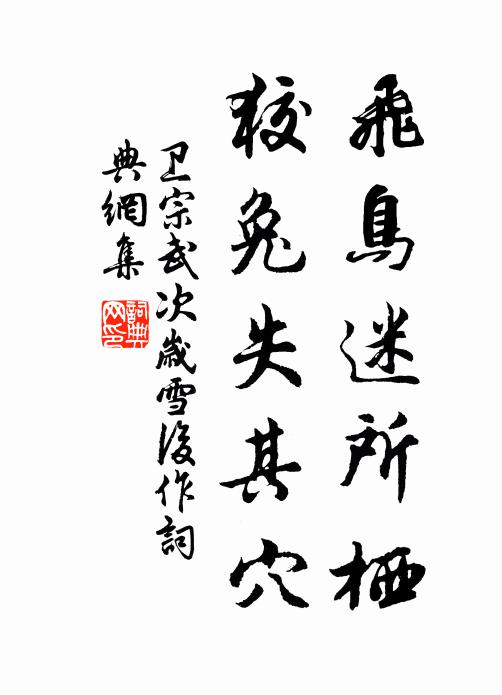 飛鳥迷所栖
狡兔失其穴
卫宗武次歲雪後作詞
典網集
詞典
网印